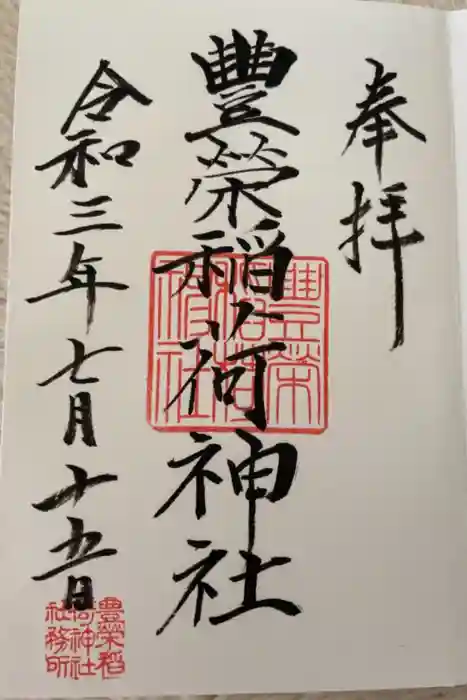 奉拝
豐榮稲荷神社
豊榮稲荷神社
令和三年七月十五日
豊榮稲荷神社社務所